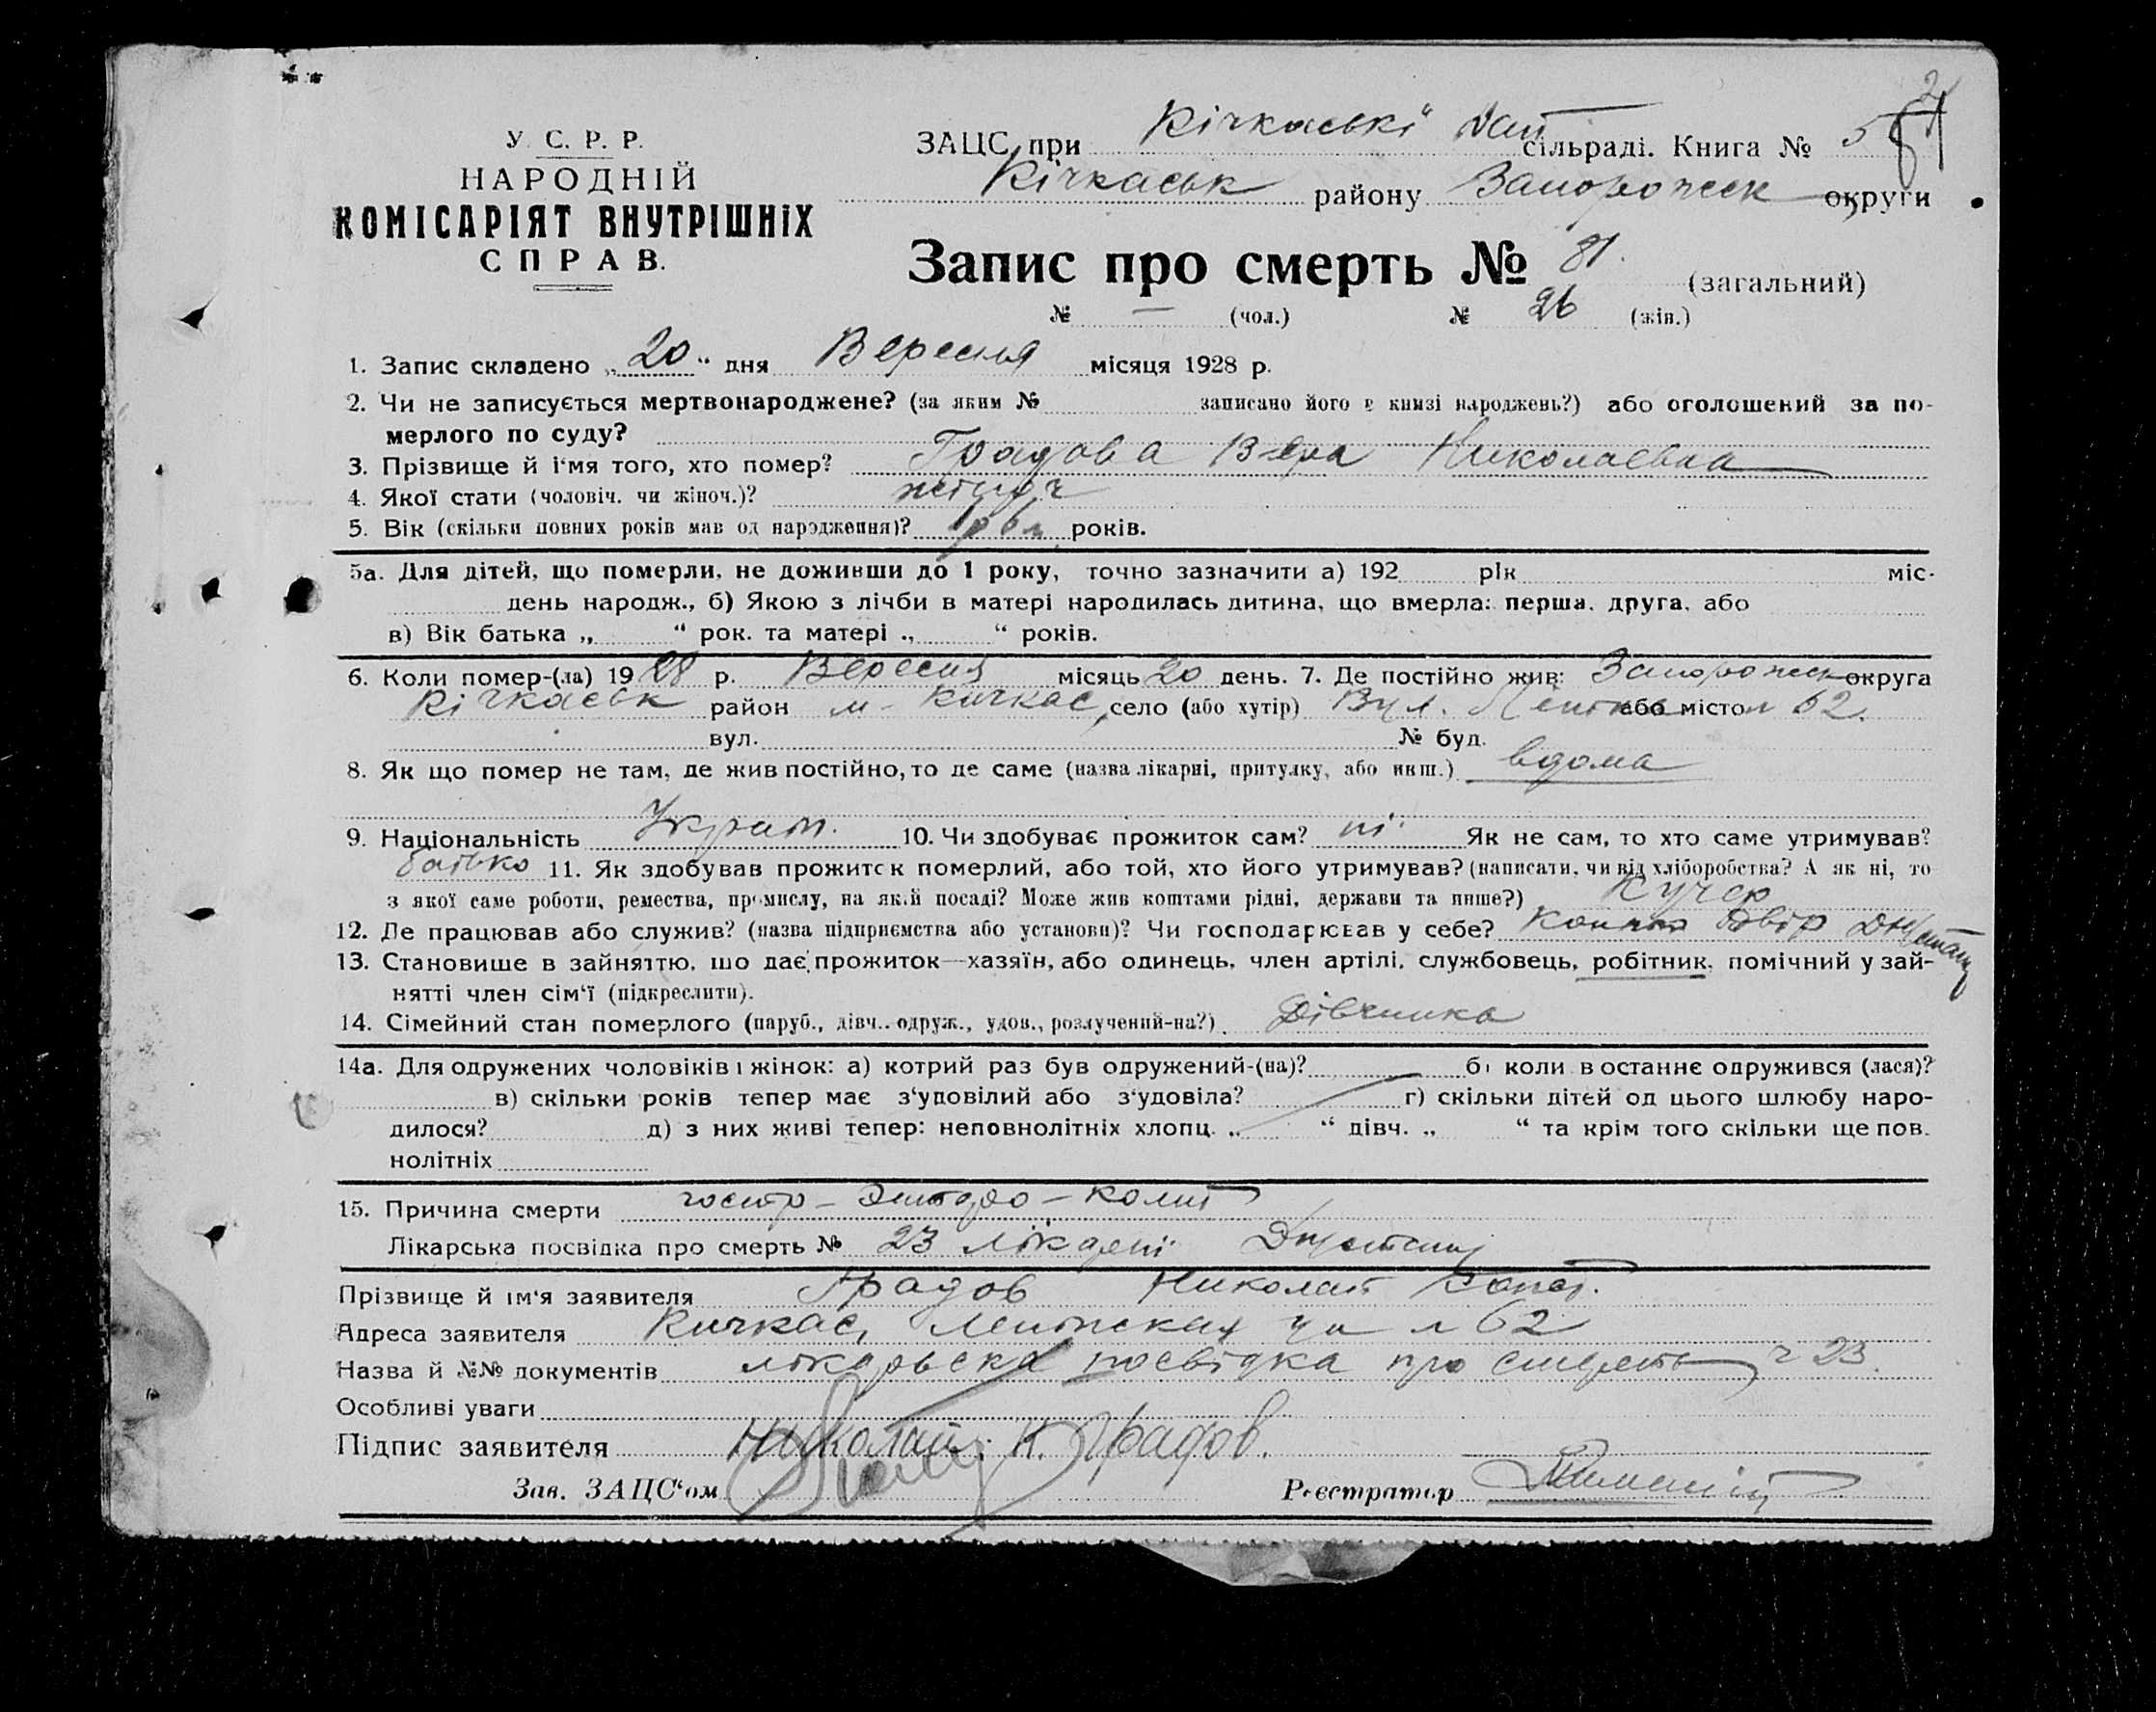 У. С. Р. Р.
НАРОДНІЙ
КОМІСАРІЯТ ВНУТРІШНІХ
СПРАВ.
ЗАЦС при Кічкаські сільраді. Книга № 5
Кічкаськ району Запорожск округи
Запис про смерть № 81. (загальний)
№ — (чол.) № 26 (жін.)
1. Запис складено „20“ дня Вересня місяця 1928 р.
2. Чи не записується мертвонароджене? (за яким № записано його в книзі народжень?) або оголошений за по-
мерлого по суду?
3. Прізвище й і‘мя того, хто помер? Градова Вера Николаевна
4. Якої стати (чоловіч. чи жіноч.)? жіноч
5. Вік (скільки повних років мав од народження)? 1р 6м років.
5а. Для дітей, що померли, не доживши до 1 року, точно зазначити а) 192 рік міс.
день народж., б) Якою з лічби в матері народилась дитина, що вмерла: перша, друга, або
в) Вік батька „ “ рок. та матері „ “ років.
6. Коли помер-(ла) 1928 р. Вересня місяць 20 день. 7. Де постійно жив: Запорожск округа
Кічкаськ район м. Кичкас, село (або хутір) Вул. або місто 62.
вул. № буд.
8. Як що помер не там, де жив постійно, то де саме (назва лікарні, притулку, або инш.) вдома
9. Національність Украін. 10. Чи здобуває прожиток сам? ні Як не сам, то хто саме утримував?
батько 11. Як здобував прожиток померлий, або той, хто його утримував? (написати, чи від хліборобства? А як ні, то
з якої саме роботи, ремества, промислу, на якій посаді? Може жив коштами рідні, держави та инше?) Кучер
12. Де працював або служив? (назва підприємства або установи)? Чи господарював у себе? Двір
13. Становище в зайняттю, що дає прожиток—хазяїн, або одинець, член артілі, службовець, робітник, помічний у зай-
нятті член сім‘ї (підкреслити).
14. Сімейний стан померлого (паруб., дівч., одруж., удов., розлучений-на?). Дівчинка
14а. Для одружених чоловіків і жінок: а) котрий раз був одружений-(на)? б) коли в останнє одружився (лася)?
в) скільки років тепер має з‘удовілий або з‘удовіла? г) скільки дітей од цього шлюбу наро-
дилося? д) з них живі тепер: неповнолітніх хлопц. „ “ дівч. „ “ та крім того скільки ще пов.
нолітніх
15. Причина смерти гостр - Ентеро - колит
Лікарська посвідка про смерть № 23 лікарні
Прізвище й ім‘я заявителя Градов Николай
Адреса заявителя Кичкас, Ленинская ул 62
Назва й №№ документів лікарьска посвідка про смерть ч 23.
Особливі уваги
Підпис заявителя Николай К. Градов.
Зав. ЗАЦС‘ом Реєстратор